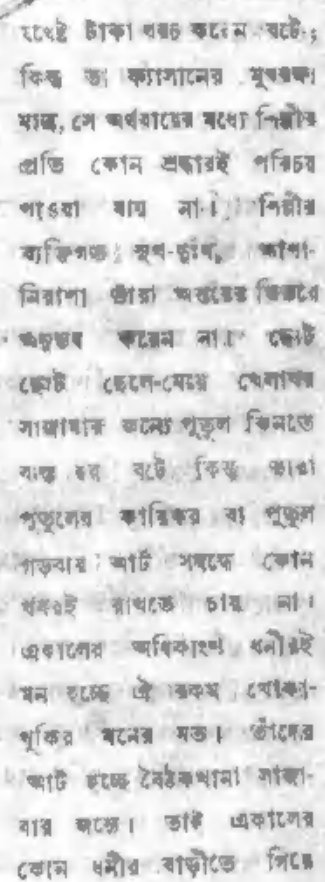 যথেষ্ট টাকা খরচ করেন বটে;
কিন্তু তা ফ্যাসানের মুখরক্ষা
মাত্র, সে অর্থব্যয়ের মধ্যে শিল্পীর
প্রতি কোন শ্রদ্ধারই পরিচয়
পাওয়া যায় না। শিল্পীর
ব্যক্তিগত সুখ-দুঃখ, আশা-
নিরাশা তাঁরা অন্তরের ভিতরে
অনুভব করেন না। ছোট
ছোট ছেলে-মেয়ে খেলাঘর
সাজাবার জন্যে পুতুল কিনতে
ব্যস্ত হয় বটে কিন্তু তারা
পুতুলের কারিকর বা পুতুল
গড়বার আর্ট সম্বন্ধে কোন
খবরই রাখতে চায় না।
একালের অধিকাংশ ধনীরই
মন হচ্ছে ঐ রকম খোকা-
খুকির মনের মত। তাঁদের
আর্ট হচ্ছে বৈঠকখানা সাজা-
বার জন্যে। তাই একালের
কোন ধনীর বাড়ীতে গিয়ে